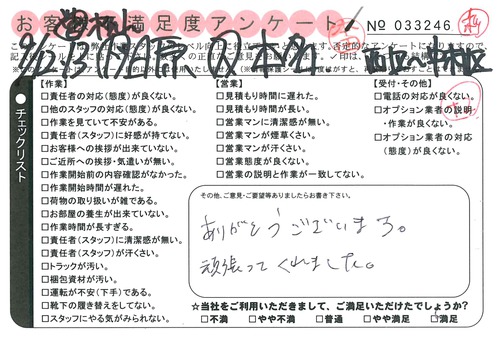 お客様満足度アンケート
No 033246
チェックリスト
【作業】
□責任者の対応(態度)が良くない。
□他のスタッフの対応(態度)が良くない。
□作業を見ていて不安がある。
□責任者(スタッフ)に好感が持てない。
□お客様への挨拶が出来ていない。
□ご近所への挨拶・気遣いが無い。
□作業開始前の内容確認がなかった。
□作業開始時間が遅れた。
□荷物の取り扱いが雑である。
□お部屋の養生が出来ていない。
□作業時間が長すぎる。
□責任者(スタッフ)に清潔感が無い。
□責任者(スタッフ)が汗くさい。
□トラックが汚い。
□梱包資材が汚い。
□運転が不安(下手)である。
□靴下の履き替えをしてない。
□スタッフにやる気がみられない。
【営業】
□見積もり時間に遅れた。
□見積もり時間が長い。
□営業マンに清潔感が無い。
□営業マンが煙草くさい。
□営業マンが汗くさい。
□営業態度が良くない。
□営業の説明と作業が一致してない。
【受付・その他】
□電話の対応が良くない。
□オプション業者の説明
・作業が良くない。
□オプション業者の対応
(態度)が良くない。
その他、ご意見・ご要望等ありましたらお書き下さい。
ありがとうございます。
頑張ってくれました。
☆当社をご利用いただきまして、ご満足いただけたでしょうか?
□不満 □やや不満 □普通 □やや満足 □満足